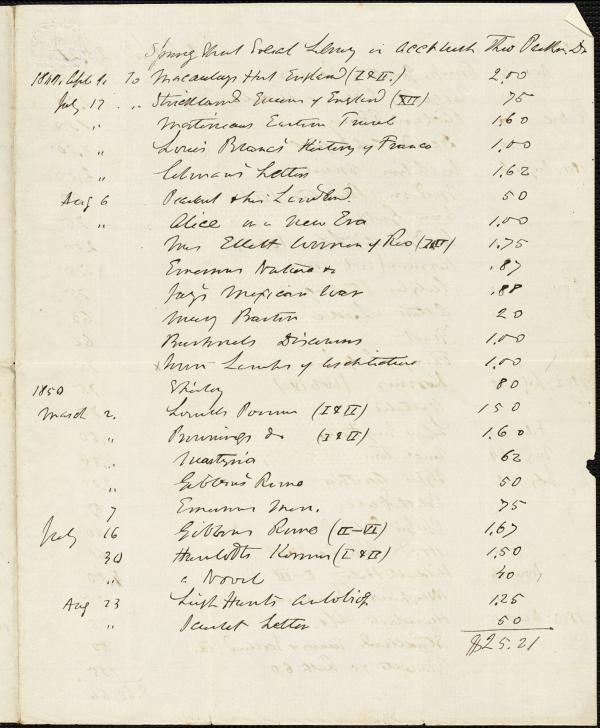 Spring Street Social Library in acct with Theo Parker, Dr
1849. Apl 9. To Macaulays Hist England (I & II.) 2.00
July 17 " Strickland Queens of England (XII) 75
" Martineaus Eastern Travel 1.60
" Louis Blanc's History of France 1.00
" Letters 1.62
Aug 6 & his Landlord. 50
" Alice in a New Era 1.00
Mrs Ellett Women of Rev (III) 1.75
Emersons Nature & .87
Jay's Mexican War .88
Mary Barton 20
Bushnels Discourses 1.00
Lambs of 1.00
1850 Shirley 80
March 2. Lowells Poems (I & II) 150
" Brownings do (I & II) 1.60
" Martyria 62
" Gibbon's Rome 50
7 Emersons Men. 75
July 16 Gibbons Rome (II-VI) 1.67
30 Humboldts Kosmos (I & II) 1.50
" a Novel 40
Aug 23 Leigh Hunts autobiog. 1.25
" Letter 50
$25.21